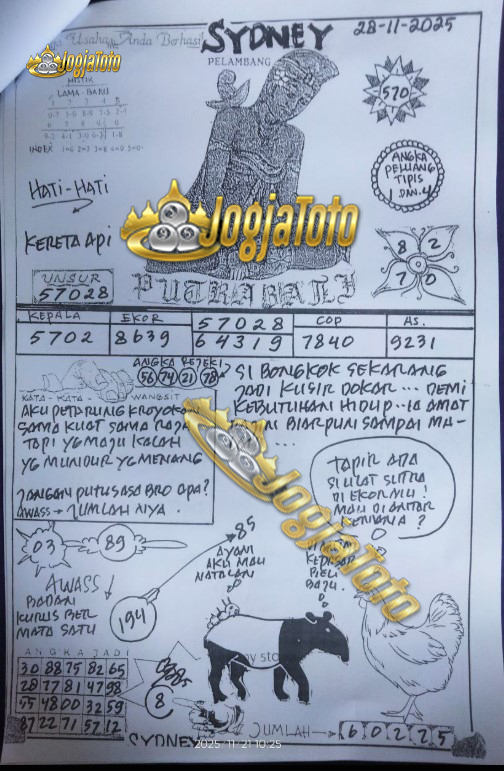 Usaha Anda Berhasil
SYDNEY
28-11-2025
PELAMBANG
JogjaToto
MISTIK
LAMA - BARU
INDEX
570
HATI-HATI
KERETA API
ANGKA
PELUANG
TIPIS
1 DAN. 4
JogjaToto
8 2
7 0
UNSUR
57028
PUTRA BALI
KEPALA EKOR 57028 COP AS.
5702 8639 64319 7840 9231
ANGKA REJEKI
56 74 21 78
KATA - KATA - WANGSIT
AKU PETARUNG KROYOKAN
SAMA KUAT SAMA RAJA
TAPI YG MAJU KALAH
YG MUNDUR YG MENANG
JANGAN PUTUS ASA BRO APA?
AWASS → JUMLAH NYA.
SI BONGKOK SEKARANG
JADI KUSIR DOKAR ... DEMI
KEBUTUHAN HIDUP .. IA AMAT
BIARPUN SAMPAI MA-
...
TAPIR ADA
SI ULAT SUTRA
DI EKORMU!
MAU DI ANTAR
KEMANA?
JogjaToto
03 89
85
AYAM
AKU MAU
NATALAN
BELI
BAJU.
AWASS
BADAN
KURUS BER
MATA SATU
194
ANGKA JADI
30 88 75 82 65
28 77 81 47 98
55 48 00 32 59
87 22 71 57 12
8
SYDNEY
JUMLAH → 60225
2025 11 21 10:25